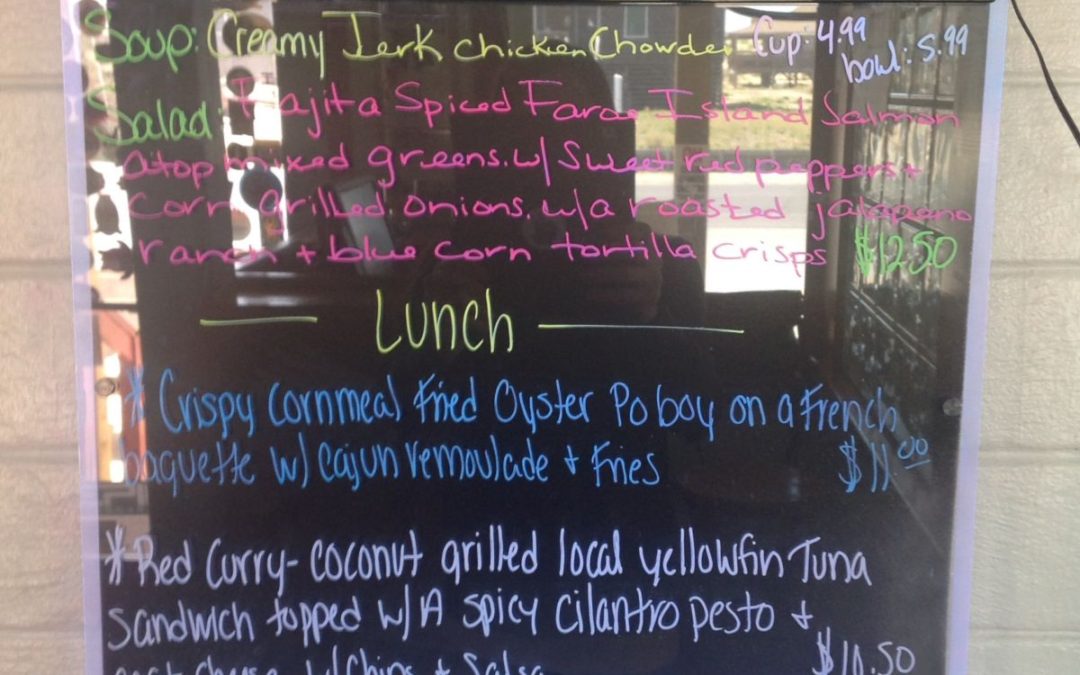 Soup: Creamy Jerk Chicken Chowder Cup: 4.99
bowl: 5.99
Salad: Fajita Spiced Faroe Island Salmon
atop mixed greens w/ sweet red peppers +
corn grilled onions w/a roasted jalapeno
ranch + blue corn tortilla crisps $12.50
Lunch
* Crispy Cornmeal Fried Oyster Po boy on a French
baguette w/ cajun remoulade + Fries $11.00
* Red Curry- coconut grilled local yellowfin Tuna
sandwich topped w/ A spicy cilantro pesto +
goat cheese w/ Chips + Salsa $10.50